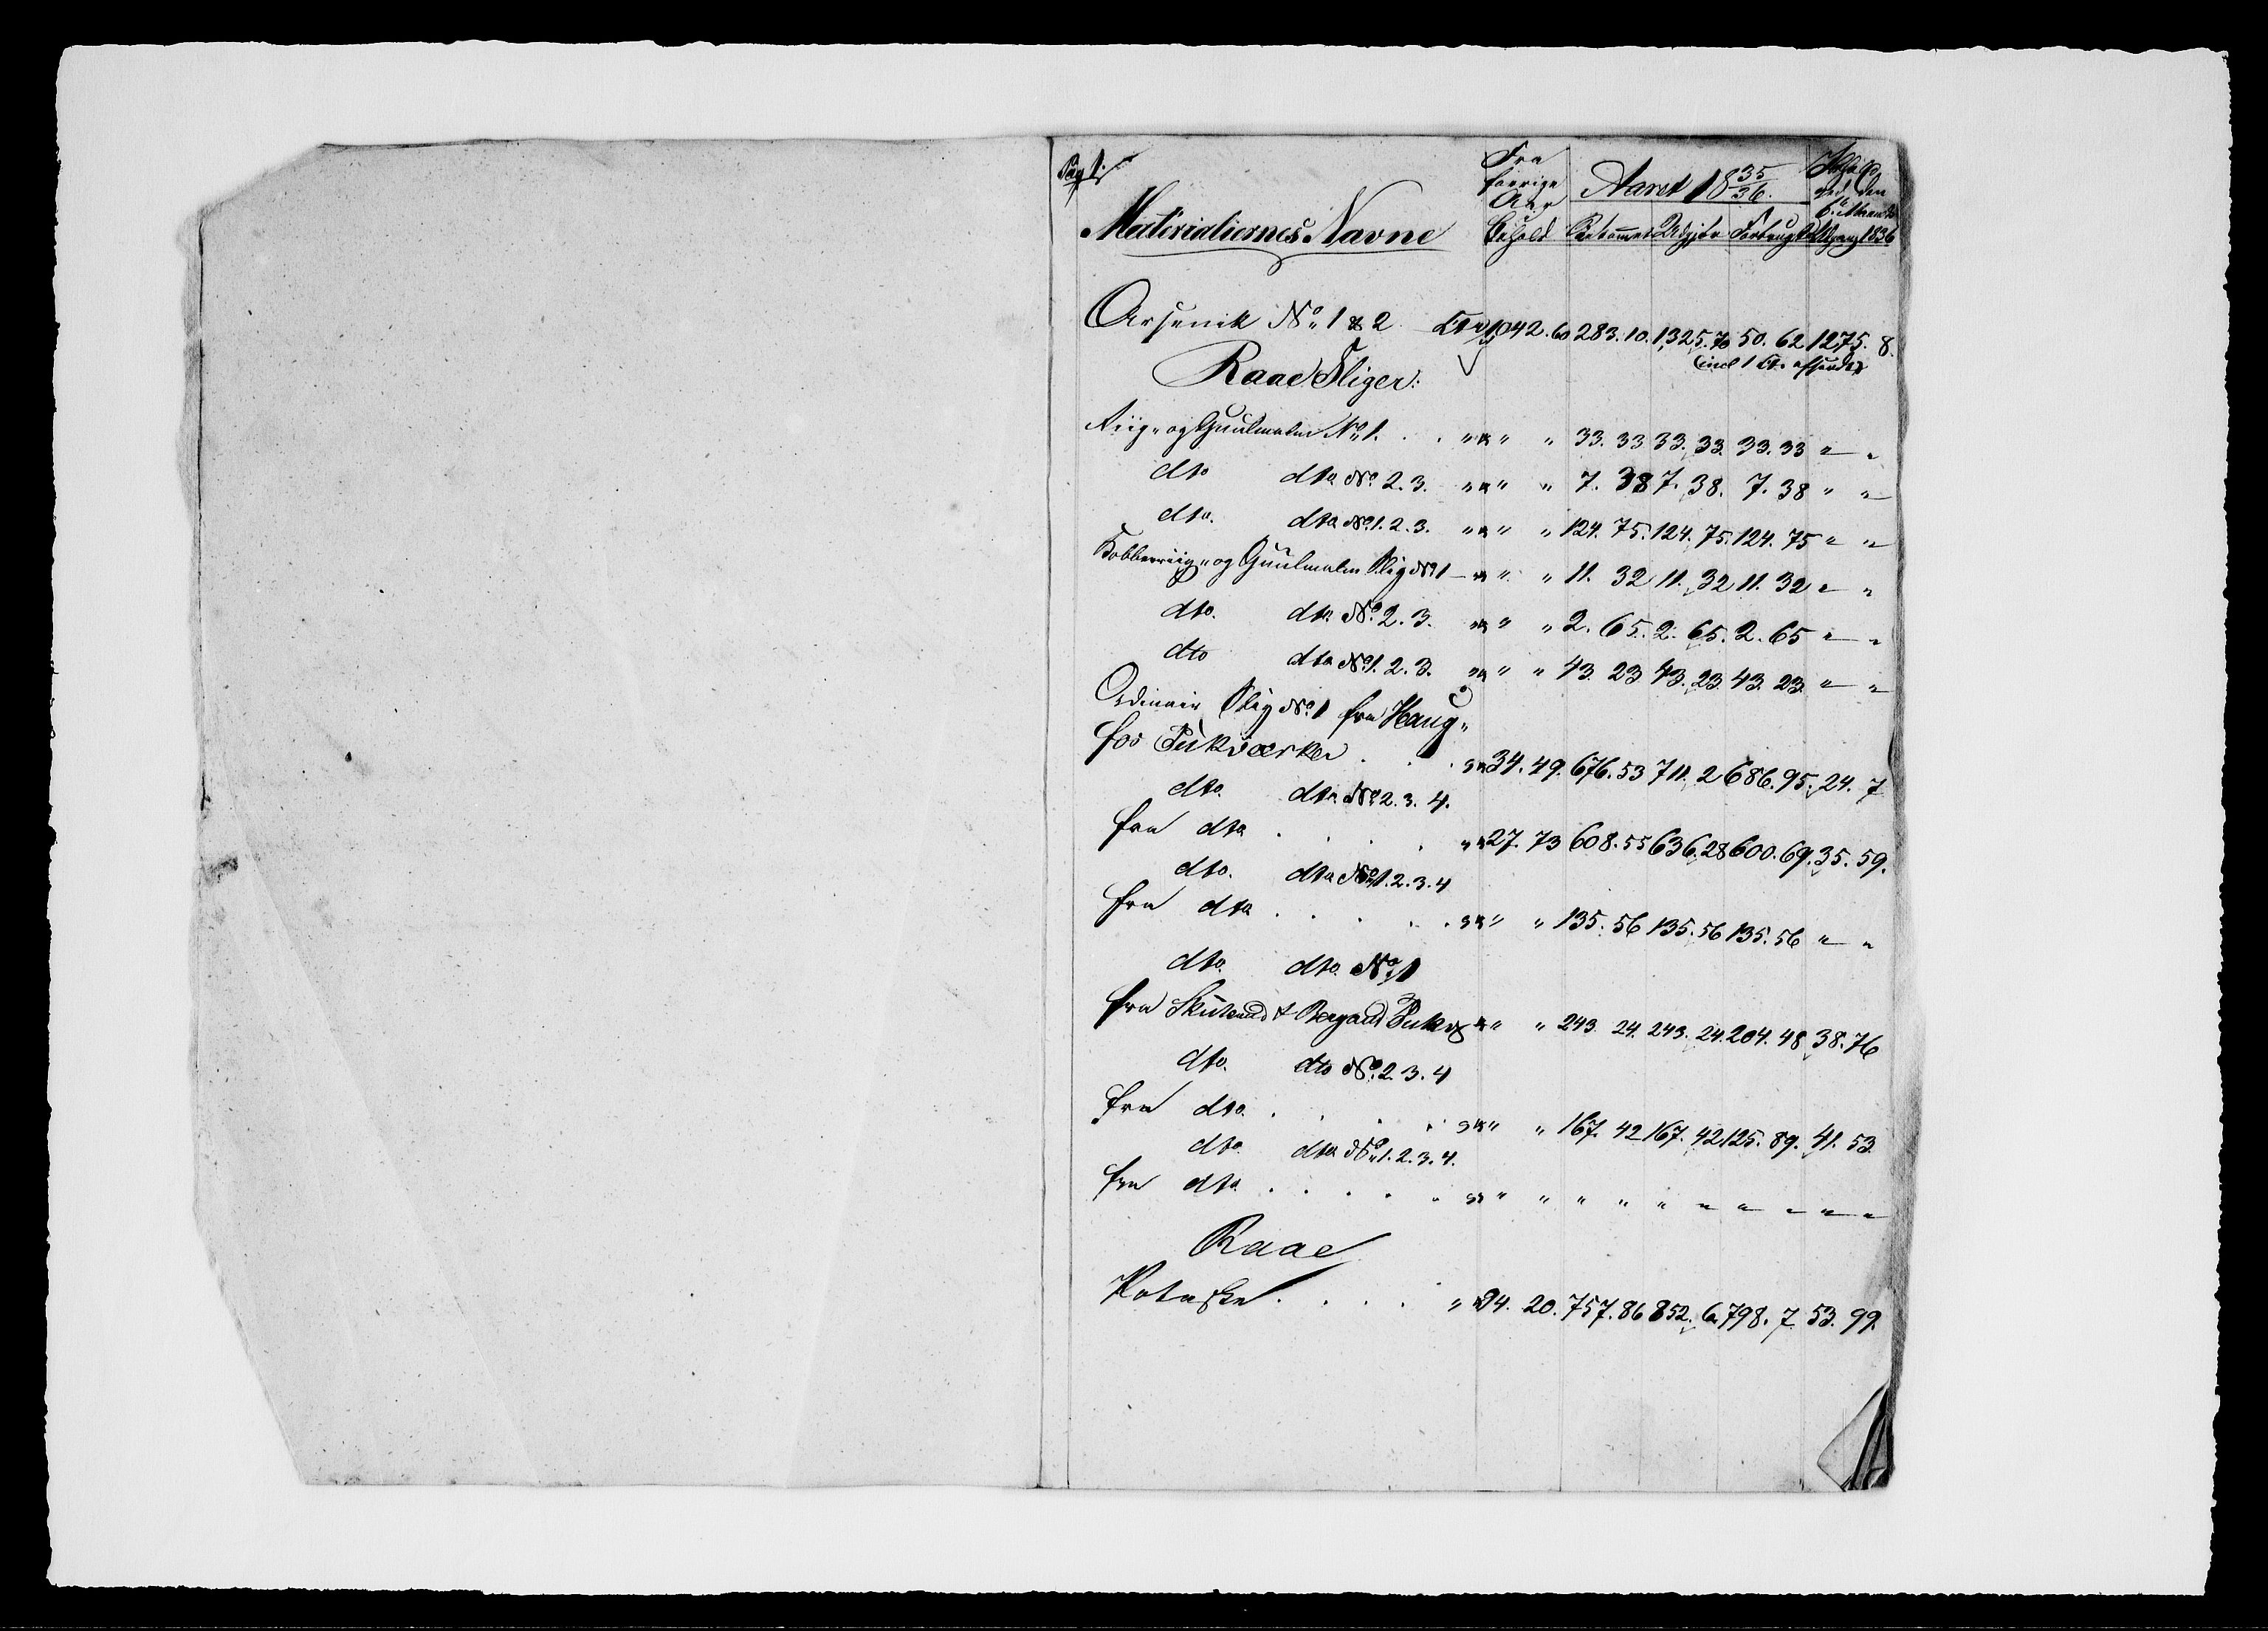 Pag 1.
Fra forrige Aar Behold | Aaret 1835/36. | Behold. ved den 6te Maaned
Materialiernes Navne | Ankommet | Udgjør | Forbrugt | Udgang 1836
Arsenik No 1 & 2 Ctr 1042. 60 283. 10. 1325. 70 50. 62 1275. 8.
(incl 1 Ct. afsendt)
Raae Sliger:
Riig- og Guulmalm No 1. . . " " " " 33. 33 33. 33. 33. 33 " "
dto dto No 2. 3. " " " " 7. 38 7. 38. 7. 38 " "
dto. dto No 1. 2. 3. " " " " 124. 75. 124. 75. 124. 75 " "
Kobberriig- og Guulmalm Slig No 1 - " " " 11. 32 11. 32 11. 32 " "
dto. dto No 2. 3. " " " " 2. 65. 2. 65. 2. 65 " "
dto dto No 1. 2. 3. " " " " 43. 23 43. 23 43. 23. " "
Ordinair Slig No 1 fra Haug-
fos Pukværker . . . " " 34. 49. 676. 53 711. 2 686. 95. 24. 7
dto. dto No 2. 3. 4.
fra dto . . . . " " 27. 73 608. 55 636. 28 600. 69. 35. 59.
dto. dto No 1. 2. 3. 4
fra dto . . . . . " " " " 135. 56 135. 56 135. 56 " "
dto. dto. No 1
fra Skuterud & Bergand Pukv " " " 243. 24. 243. 24. 204. 48 38. 76
dto. dto No 2. 3. 4
fra dto. . . . . . " " " " 167. 42 167. 42 125. 89. 41. 53.
dto. dto No 1. 2. 3. 4.
fra dto. . . . . . " " " " " " " " " "
Raae
Potaske . . . . " " 94. 20. 757. 86 852. 6. 798. 7 53. 99.